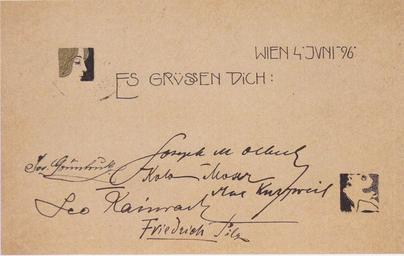 WIEN 4. JVNI "96
ES GRÜSSEN DICH:
Joseph M Olbrich
Kolo Moser
Max Kurzweil
Leo Kainradl
Friedrich Pilz